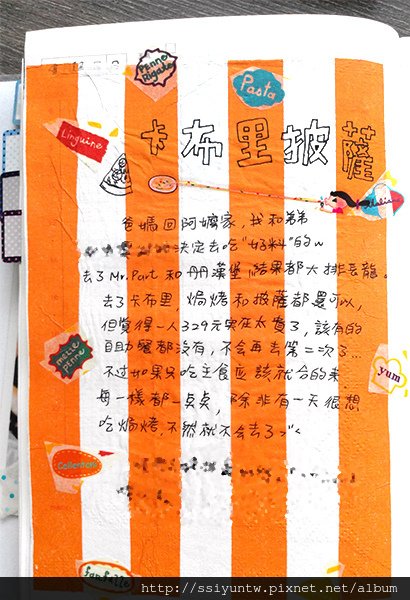 Penne
Rigate
Pasta
Linguine
卡布里披薩
爸媽回阿嬤家,我和弟弟
決定去吃"好料"的w
去了Mr.Part和丹丹漢堡,結果都大排長龍。
去了卡布里,焗烤和披薩都還可以,
但覺得一人329元實在太貴了,該有的
自助餐都沒有,不會再去第二次了…
不過如果只吃主食應該就合的來
每一樣都一點點,除非有一天很想
吃焗烤,不然就不會去了
mezze
penne
yum
Collentani
farfalle
http://ssiyuntw.pixnet.net/album